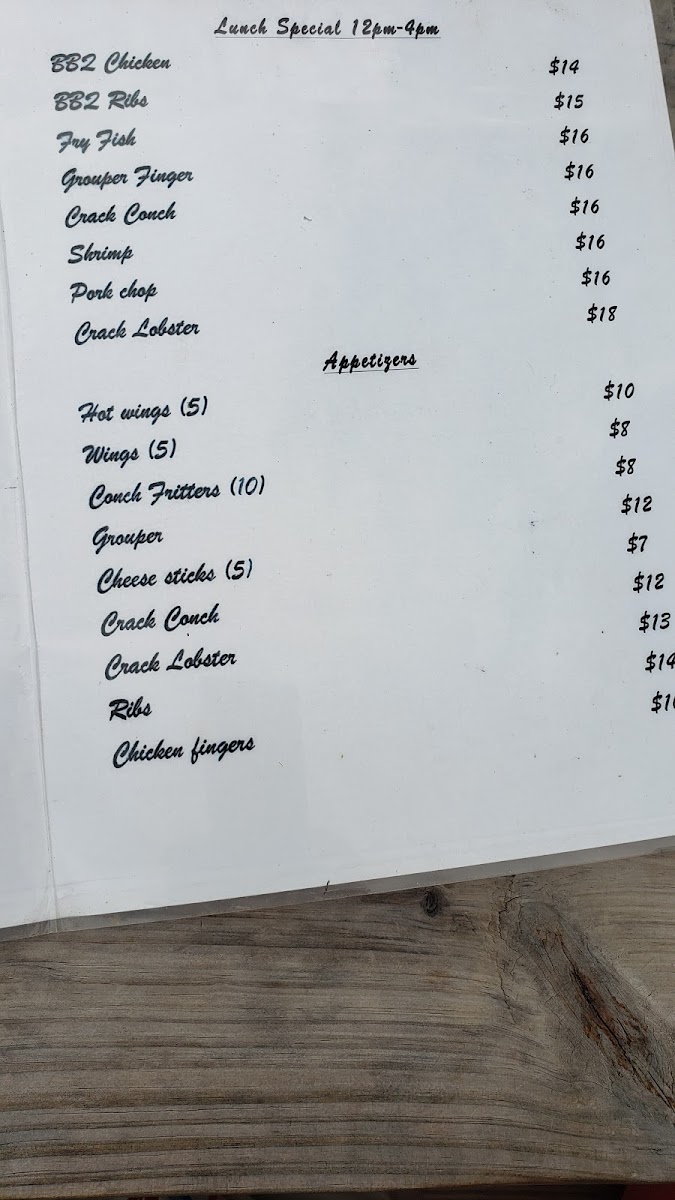 Lunch Special 12pm-4pm
BBQ Chicken $14
BBQ Ribs $15
Fry Fish $16
Grouper Finger $16
Crack Conch $16
Shrimp $16
Pork chop $16
Crack Lobster $18
Appetizers
Hot wings (5) $10
Wings (5) $8
Conch Fritters (10) $8
Grouper $12
Cheese sticks (5) $7
Crack Conch $12
Crack Lobster $13
Ribs $14
Chicken fingers